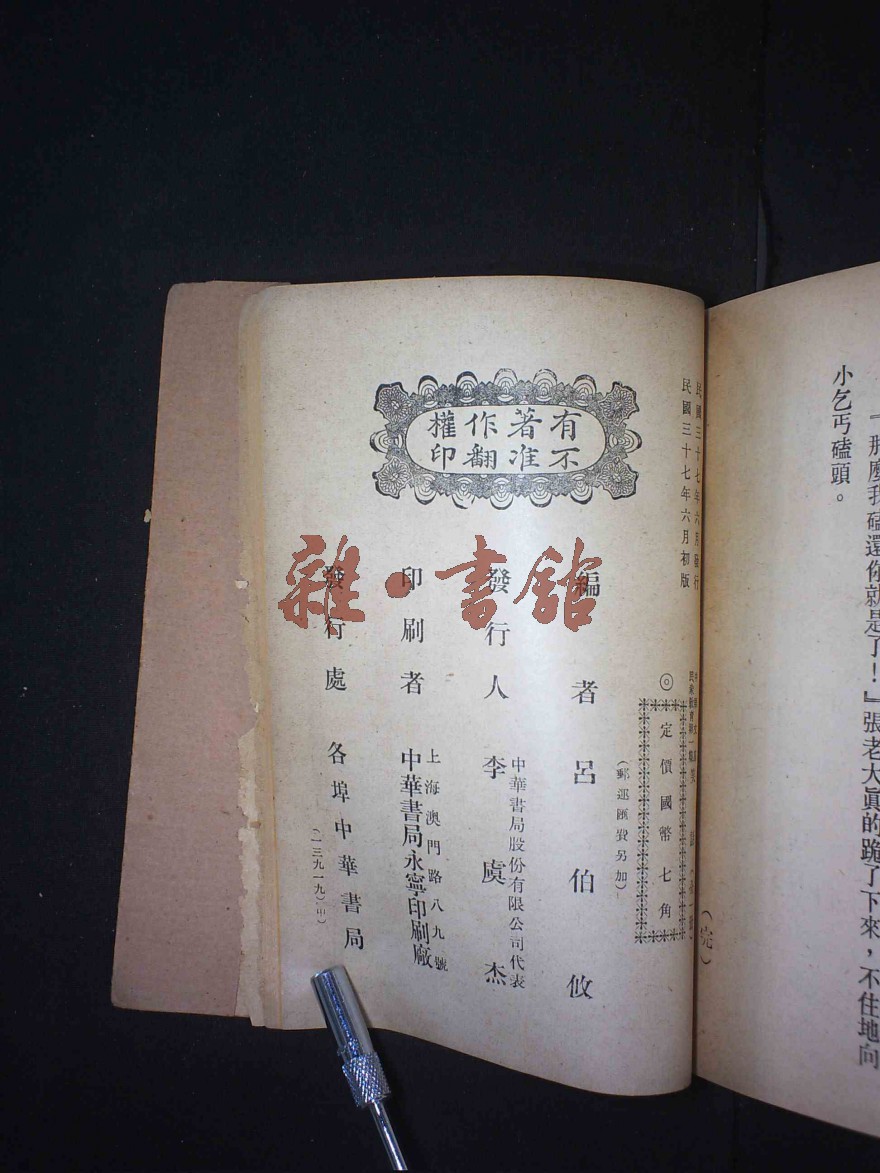 『那麼我磕還你就是了！』張老大眞的跪了下來，不住地向
小乞丐磕頭。
（完）
民國三十七年六月發行
民國三十七年六月初版
◎定價國幣七角
（郵運匯費另加）
有著作權
不准翻印
編者 呂伯攸
發行人
中華書局股份有限公司代表
李虞杰
印刷者
上海澳門路八九號
中華書局永寧印刷廠
發行處 各埠中華書局
（一三九一九）（甲）
雜·書館